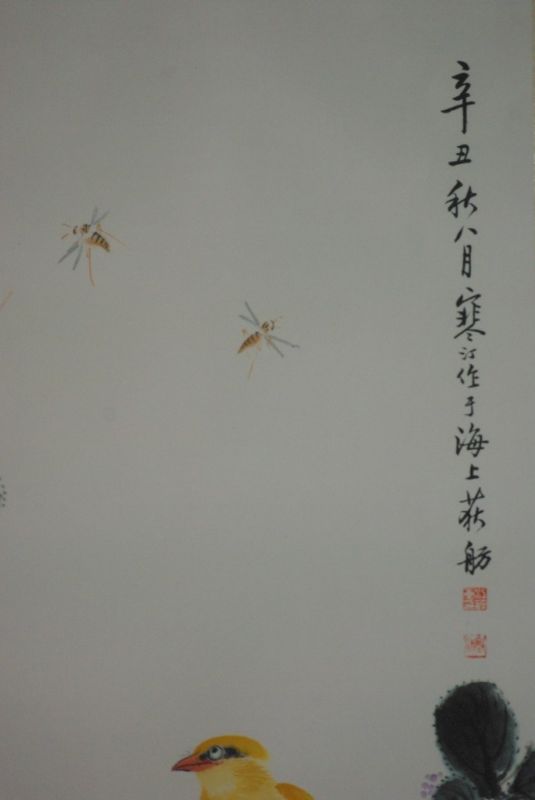 辛丑秋八月寒汀作于海上荻舫